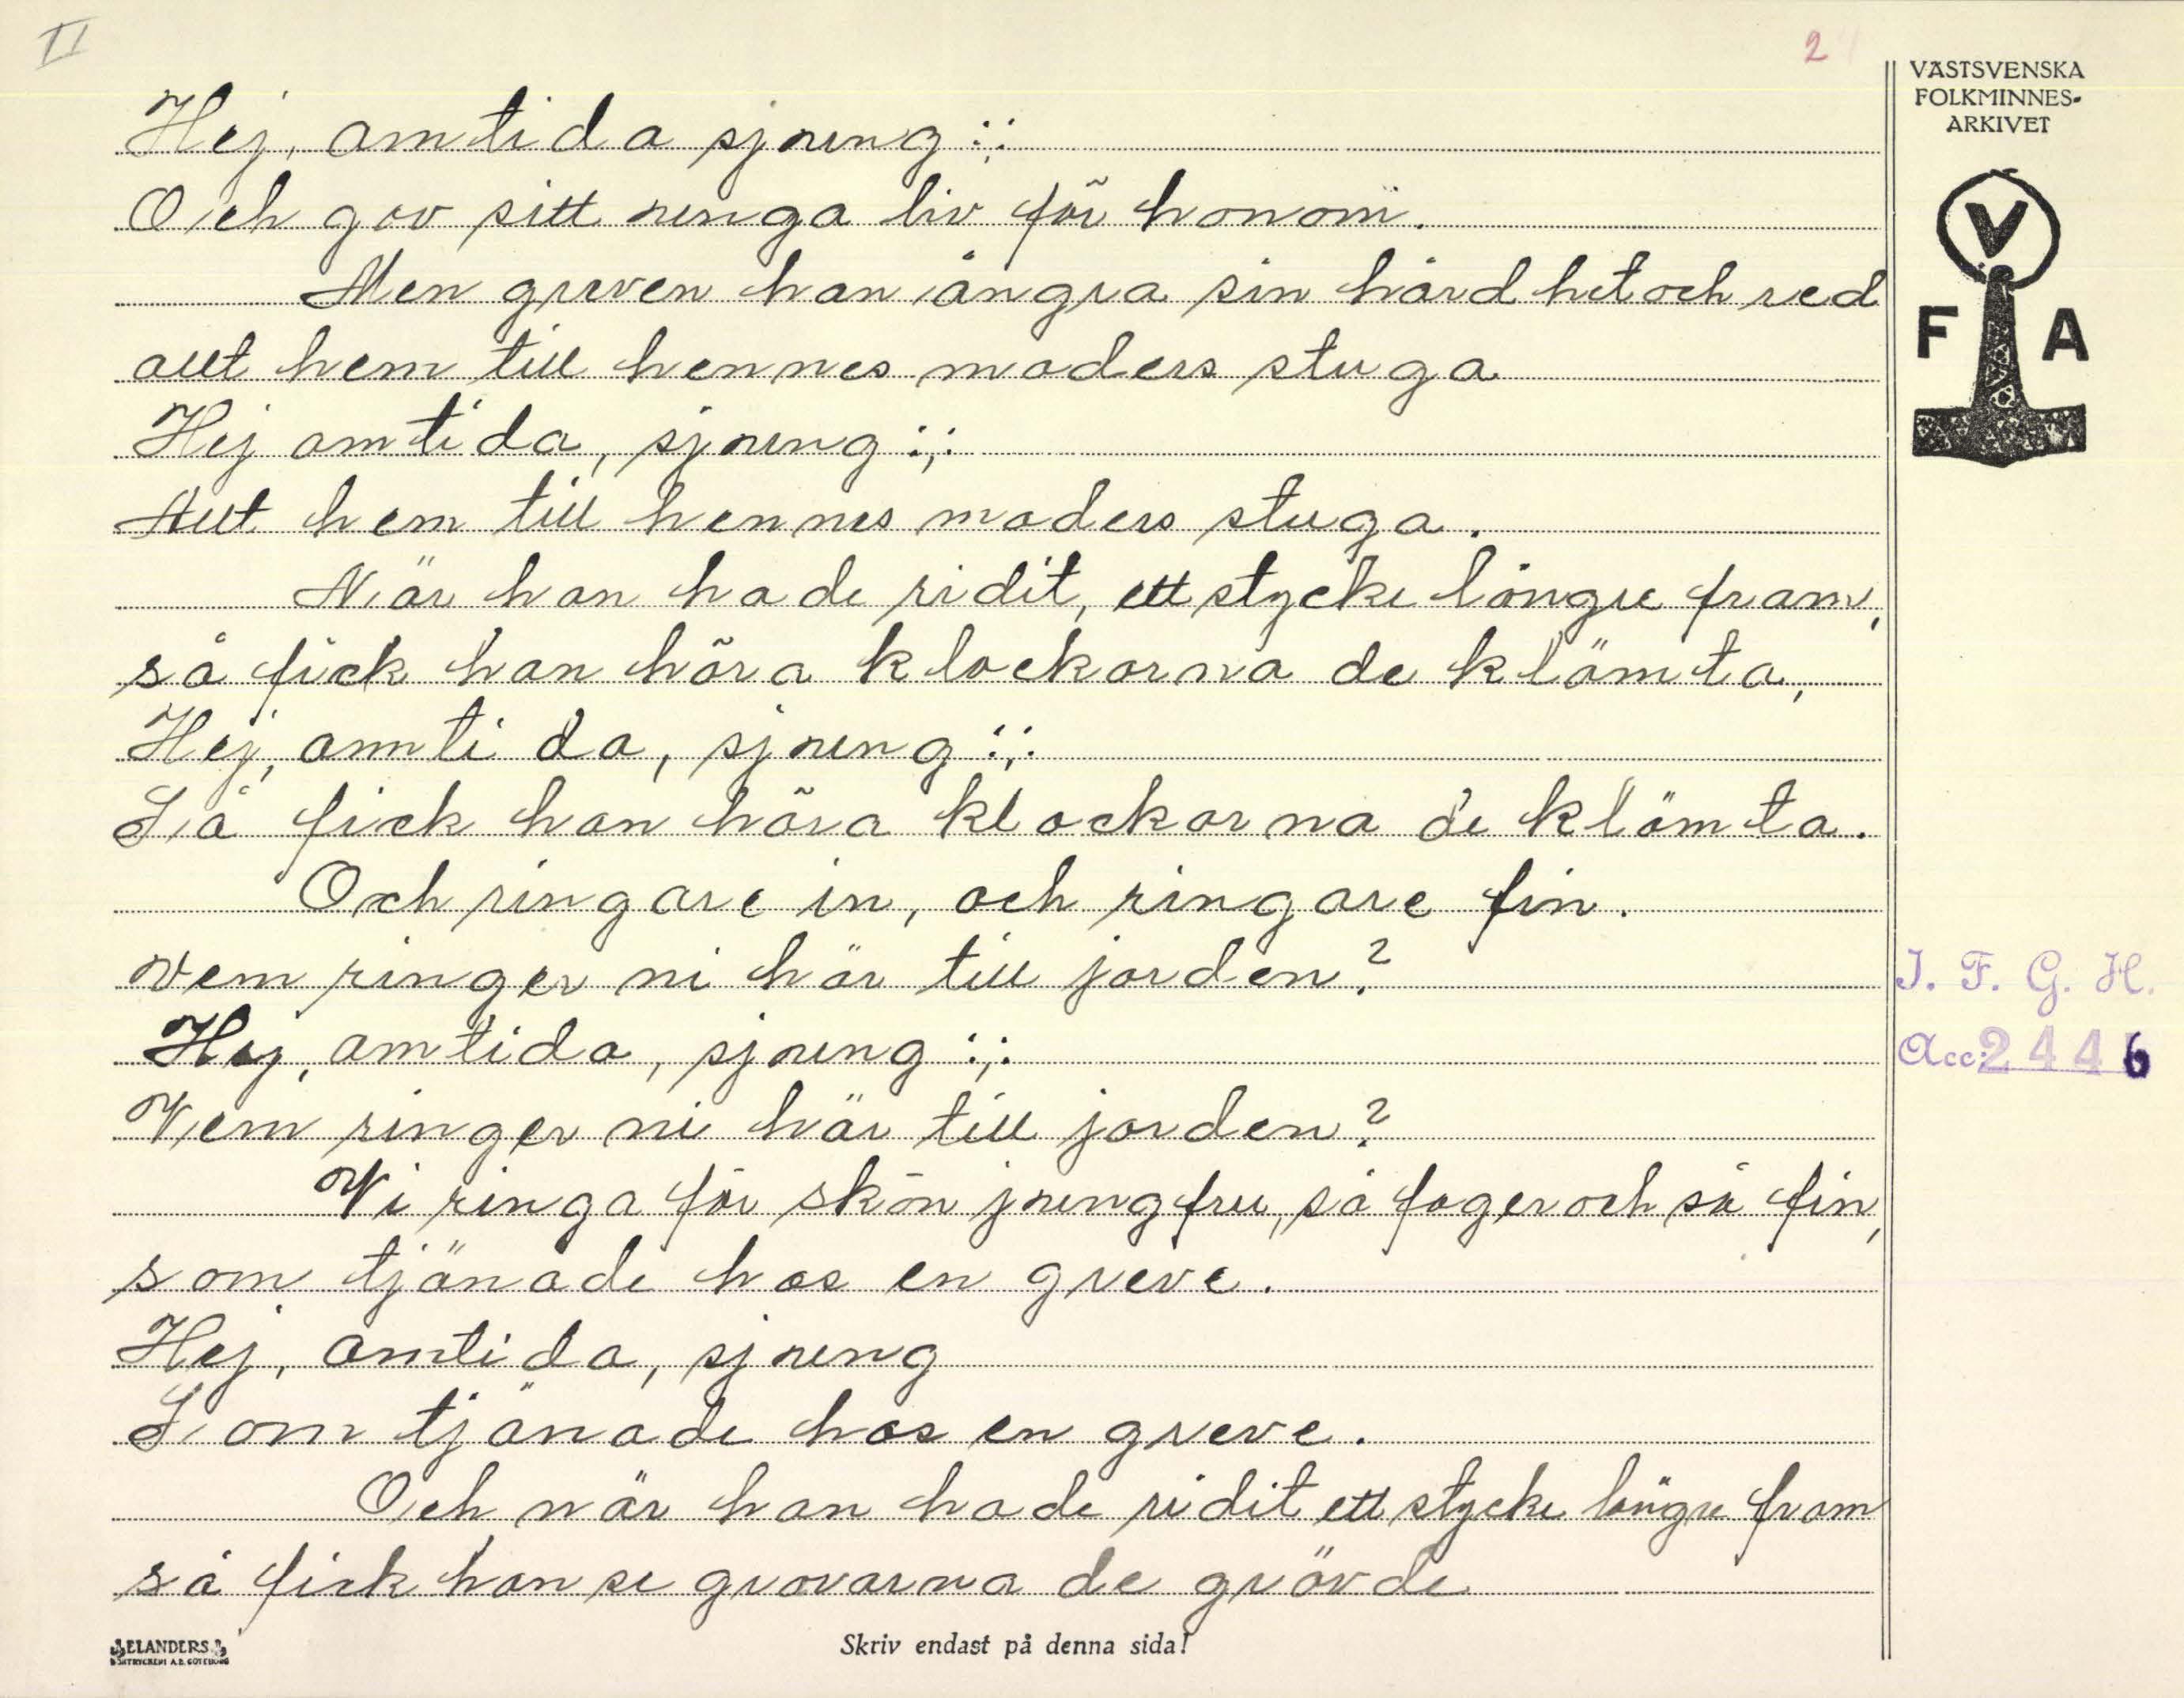 II
2
VÄSTSVENSKA
FOLKMINNES-
ARKIVET
V
F A
Hej, amtida sjung :,:
Och gav sitt unga liv för honom.
Men greven han ångra sin hårdhet och red
allt hem till hennes moders stuga
Hej amtida, sjung :,:
Allt hem till hennes moders stuga.
När han hade ridit, ett stycke längre fram,
så fick han höra klockorna de klämta,
Hej, amti da, sjung :,:
Så fick han höra klockorna de klämta.
Och ringare in, och ringare fin.
vem ringer ni här till jorden?
Hej, amtida, sjung :,:
Vem ringer ni här till jorden?
Vi ringa för skön jungfru, så fager och så fin,
som tjänade hos en greve.
Hej, amtida, sjung
Som tjänade hos en greve.
Och när han hade ridit ett stycke längre fram
så fick han se gravarna de grävde
I. F. G. H.
Acc: 2446
ELANDERS
BOKTRYCKERI A.B. GÖTEBORG
Skriv endast på denna sida!